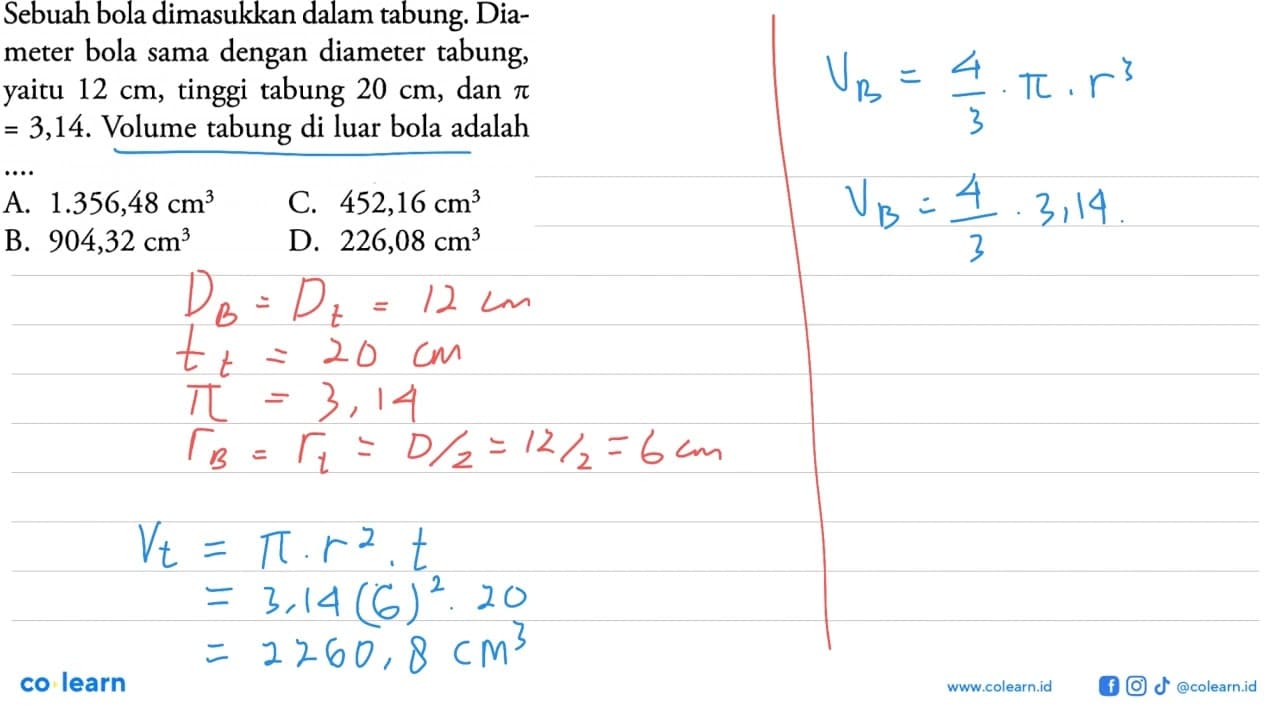 Sebuah bola dimasukkan dalam tabung. Dia-
meter bola sama dengan diameter tabung,
yaitu 12 cm, tinggi tabung 20 cm, dan π
= 3,14. Volume tabung di luar bola adalah
....
A. 1.356,48 cm³ C. 452,16 cm³
B. 904,32 cm³ D. 226,08 cm³
D_B = D_t = 12 cm
t_t = 20 cm
π = 3,14
r_B = r_t = D/2 = 12/2 = 6 cm
V_t = π . r² . t
= 3,14 (6)² . 20
= 2260,8 cm³
V_B = 4/3 . π . r³
V_B = 4/3 . 3,14 .
co learn
www.colearn.id
@colearn.id